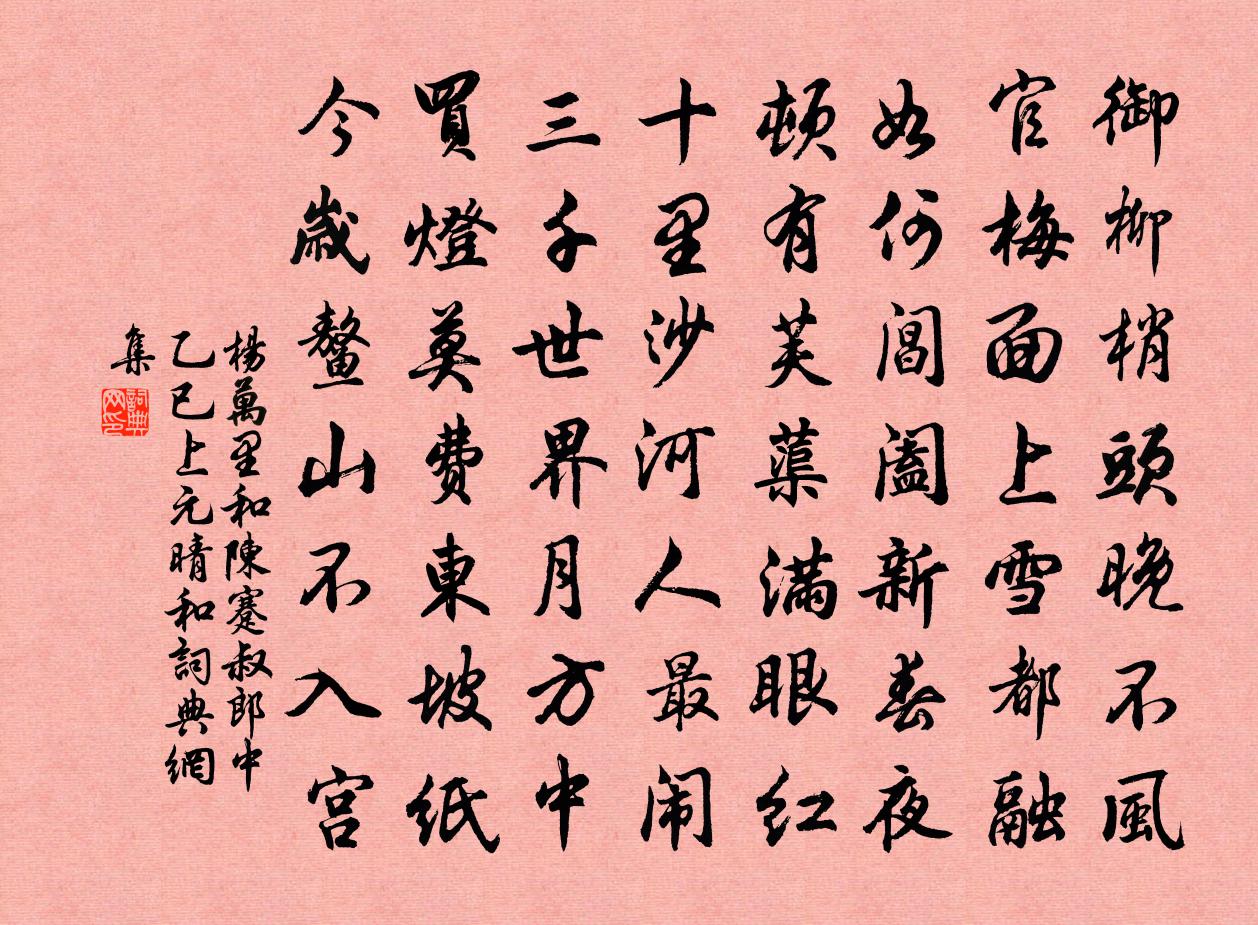 御柳梢頭晚不風
官梅面上雪都融
如何閶闔新春夜
頓有芙蕖滿眼紅
十里沙河人最闹
三千世界月方中
買燈莫費東坡纸
今歲鰲山不入宮
楊萬里和陳蹇叔郎中
乙巳上元晴和詞典網
集
詞典网印